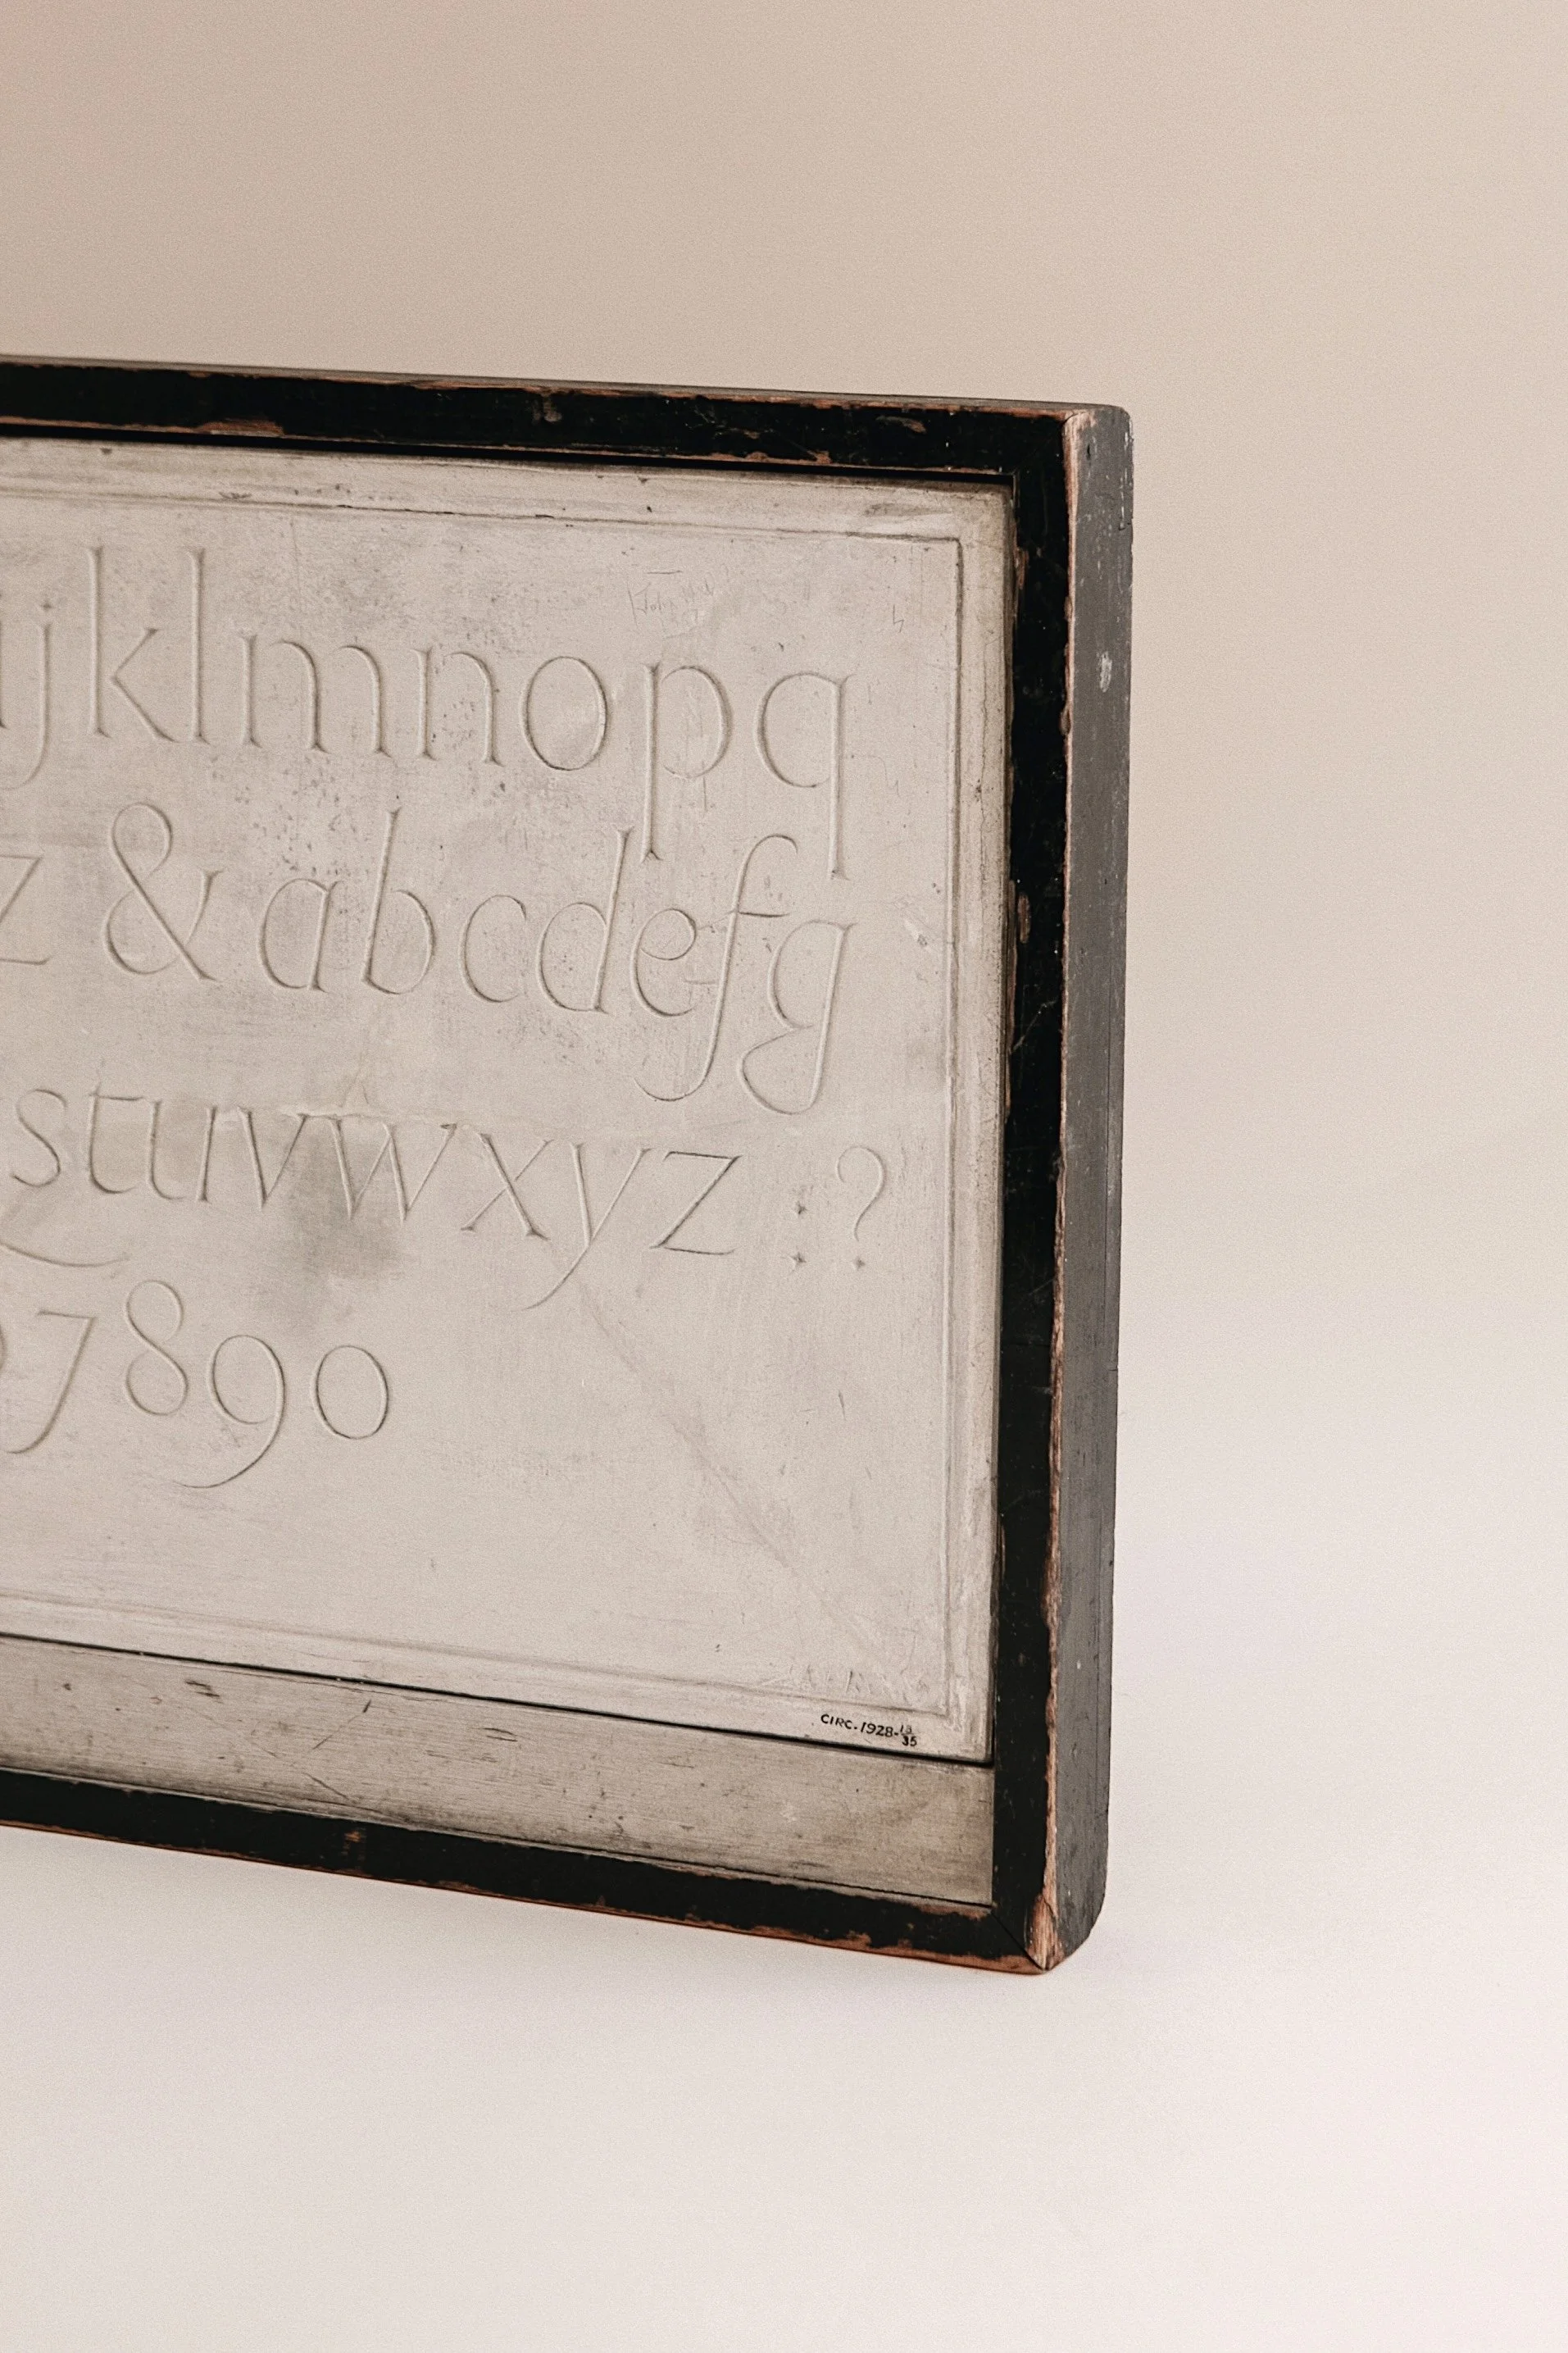 jklmnopq
z & abcdefg
stuvwxyz :?
7890
CIRC.1928-13/35